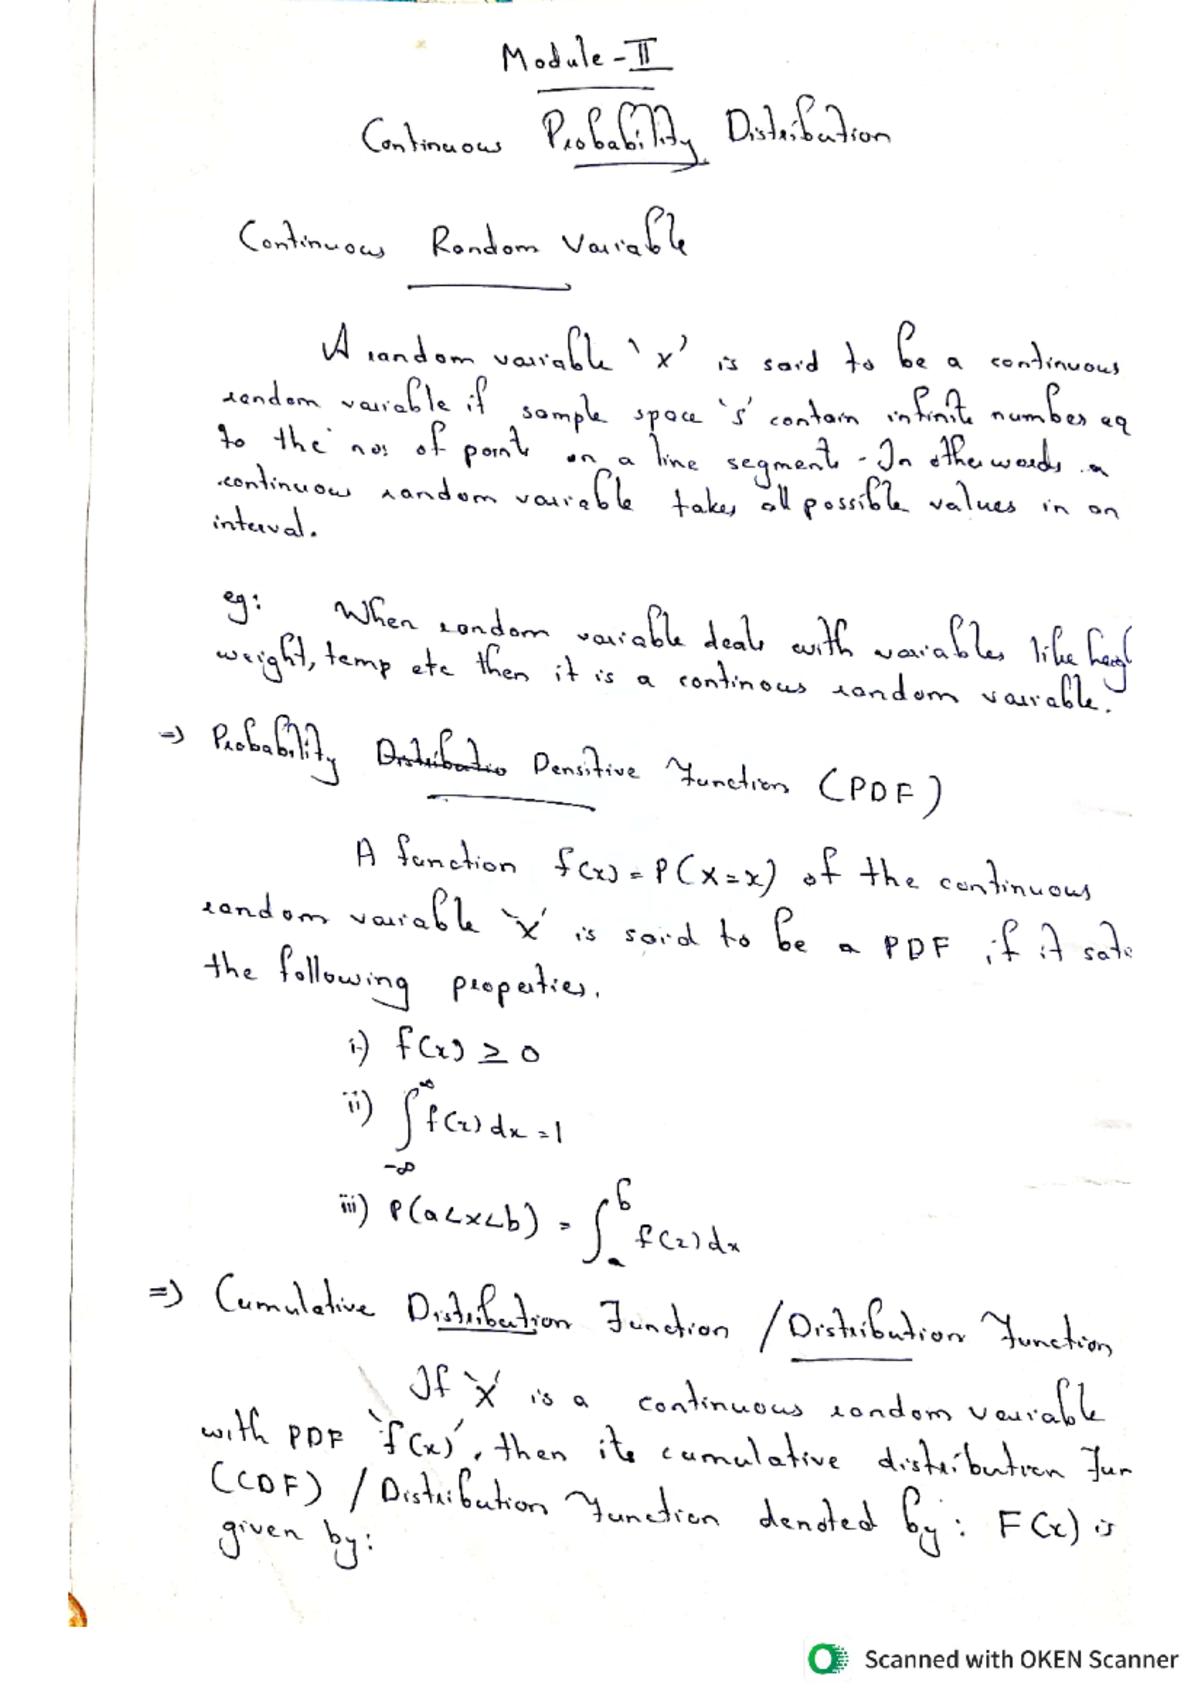 Module - II
Continuous Probability Distribution
Continuous Random Variable
A random variable 'x' is said to be a continuous
random variable if sample space 's' contain infinite number eq
to the nos of point on a line segment - In other words a
continuous random variable takes all possible values in an
interval.
eg: When random variable deals with variables like heigh
weight, temp etc then it is a continous random variable.
=> Probability Distributio Densitive Function (PDF)
A function f(x) = P(X=x) of the continuous
random variable 'X' is said to be a PDF if it satis
the following properties.
i) f(x) ≥ 0
ii) ∫_{-∞}^{∞} f(x) dx = 1
iii) P(a<x<b) = ∫_a^b f(x) dx
=> Cumulative Distribution Function / Distribution Function
If 'X' is a continuous random variable
with PDF 'f(x)', then its cumulative distribution Fun
(CDF) / Distribution Function denoted by: F(x) is
given by:
Scanned with OKEN Scanner